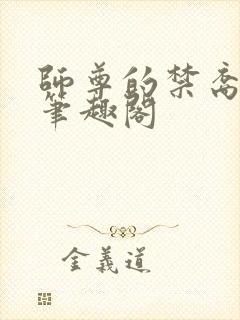 師尊的禁脔
筆趣閣
金義道